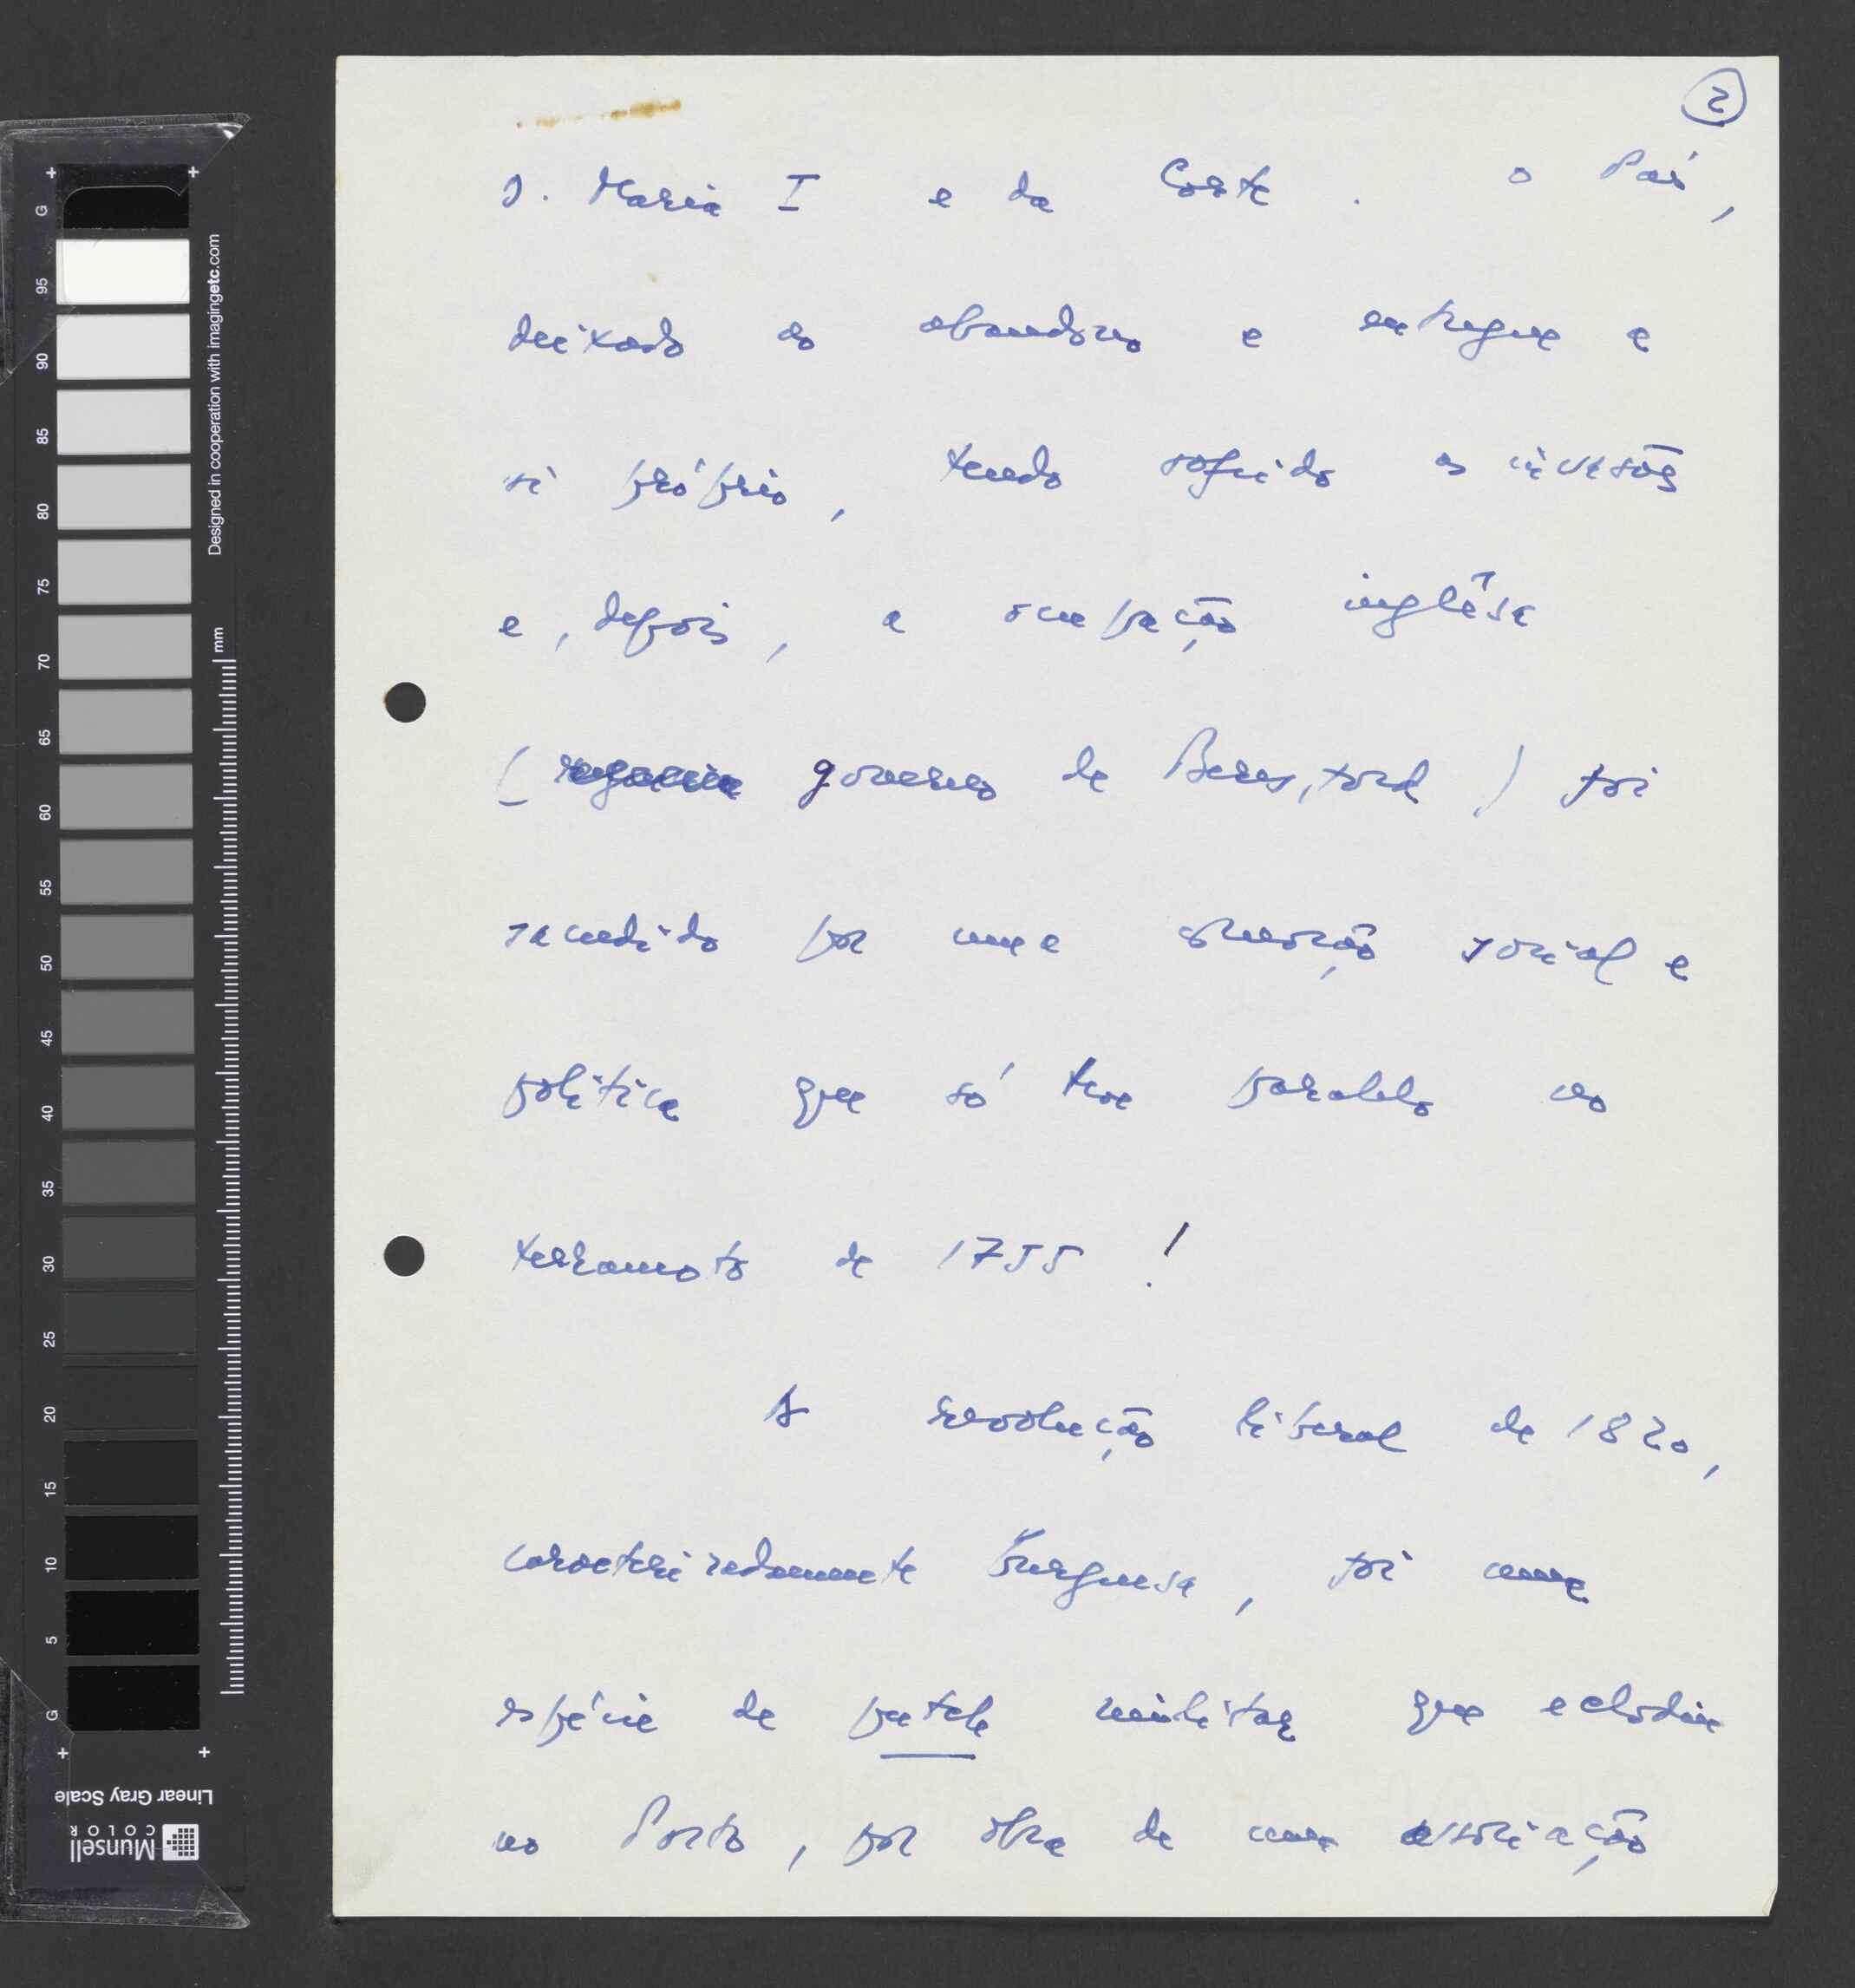 2
D. Maria I e da Corte. O País,
deixado ao abandono e entregue a
si próprio, tendo sofrido as invasões
e, depois, a ocupação inglêsa
( governo de Beresford) foi
sacudido por uma social e
política que só teve paralelo no
terramoto de 1755!
A revolução liberal de 1820,
caracterizadamente burguesa, foi uma
espécie de putch militar que eclodiu
no Porto, por obra de uma associação
G
95
90
85
80
75
70
65
60
55
50
45
40
35
30
25
20
15
10
5
G
Designed in cooperation with imagingetc.com
mm
Linear Gray Scale
Munsell
COLOR